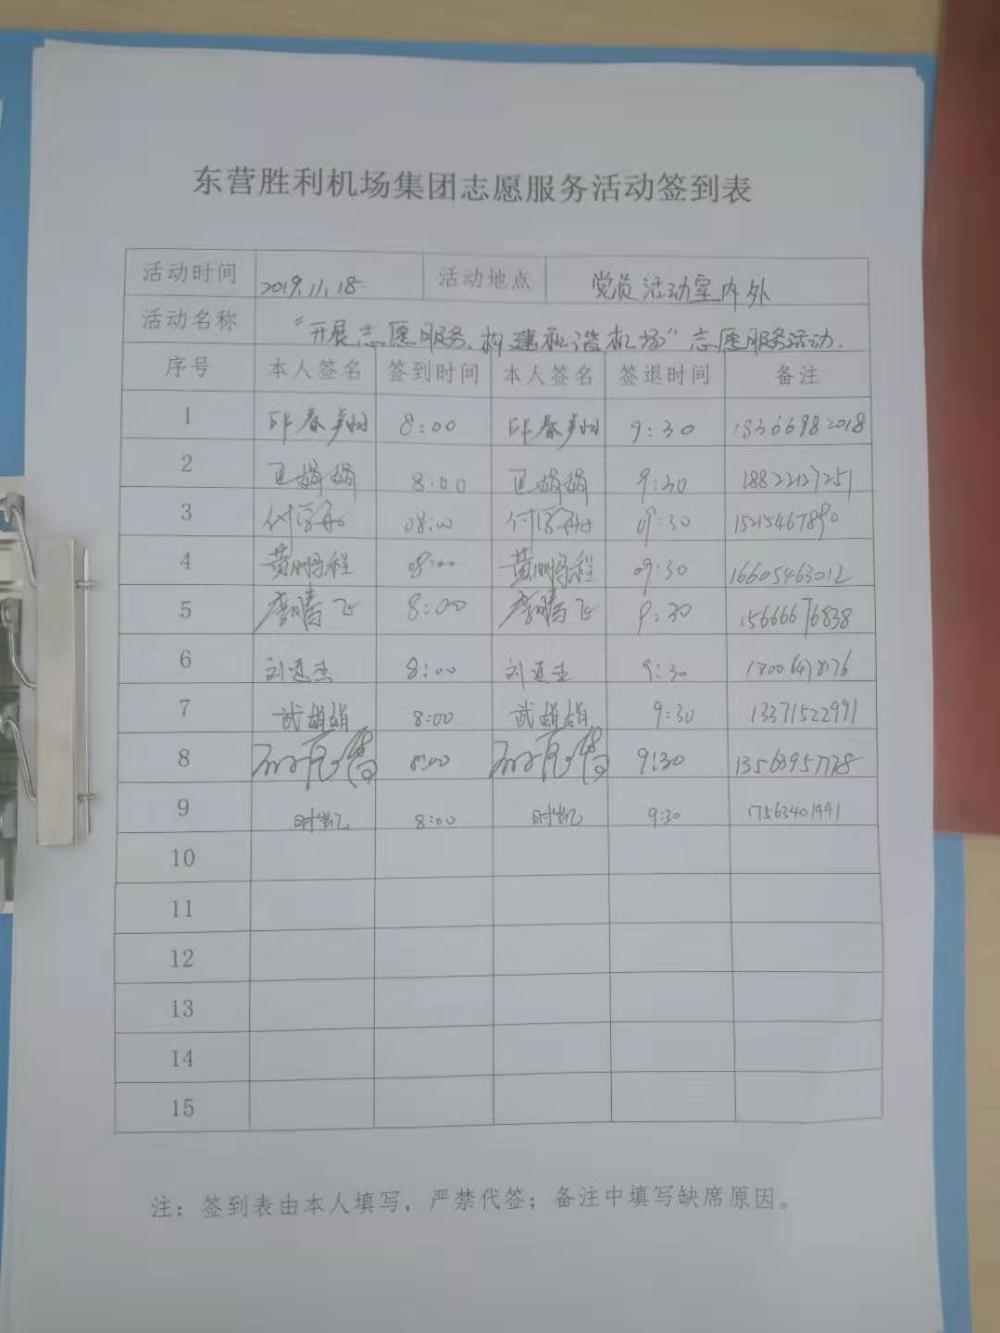 东营胜利机场集团志愿服务活动签到表
活动时间 2019.11.18 活动地点 党员活动室内外
活动名称 "开展志愿服务、构建和谐机场"志愿服务活动.
序号 本人签名 签到时间 本人签名 签退时间 备注
1 8:00 9:30 13366982018
2 卫娟娟 8:00 卫娟娟 9:30 18822127251
3 08:00 09:30 15215467890
4 黄鹏程 08:00 黄鹏程 09:30 16605463012
5 腾飞 8:00 腾飞 9:30 15666676838
6 8:00 9:30
7 武娟娟 8:00 武娟娟 9:30 13371522991
8 8:00 9:30
9 时凯 8:00 时凯 9:30 17563401991
10
11
12
13
14
15
注：签到表由本人填写，严禁代签；备注中填写缺席原因。